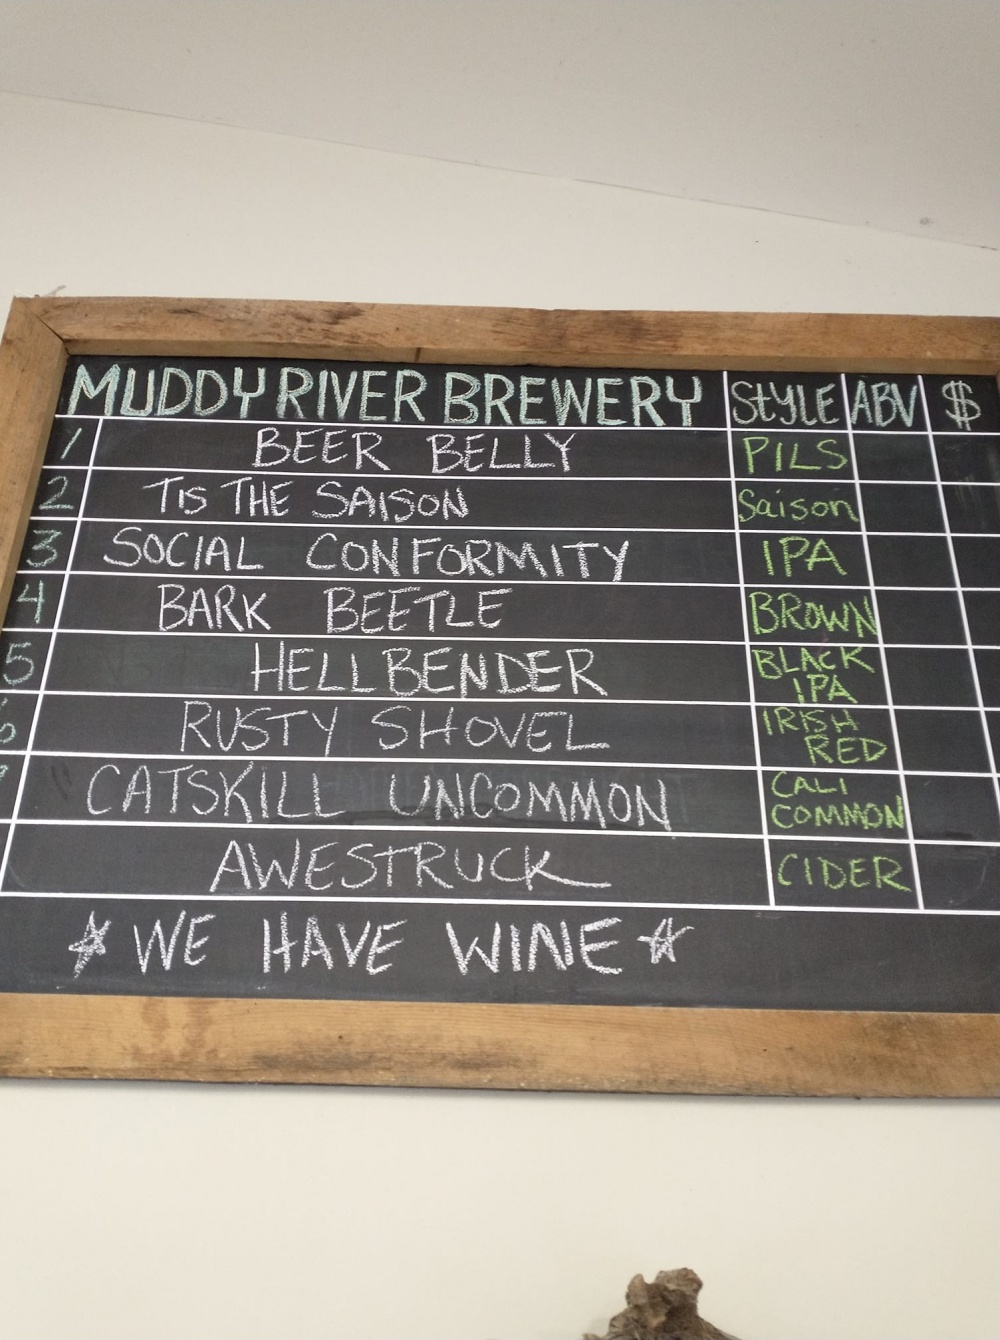 MUDDY RIVER BREWERY STYLE ABV $
1 BEER BELLY PILS
2 TIS THE SAISON Saison
3 SOCIAL CONFORMITY IPA
4 BARK BEETLE BROWN
5 HELLBENDER BLACK IPA
6 RUSTY SHOVEL IRISH RED
CATSKILL UNCOMMON CALI COMMON
AWESTRUCK CIDER
☆ WE HAVE WINE ☆